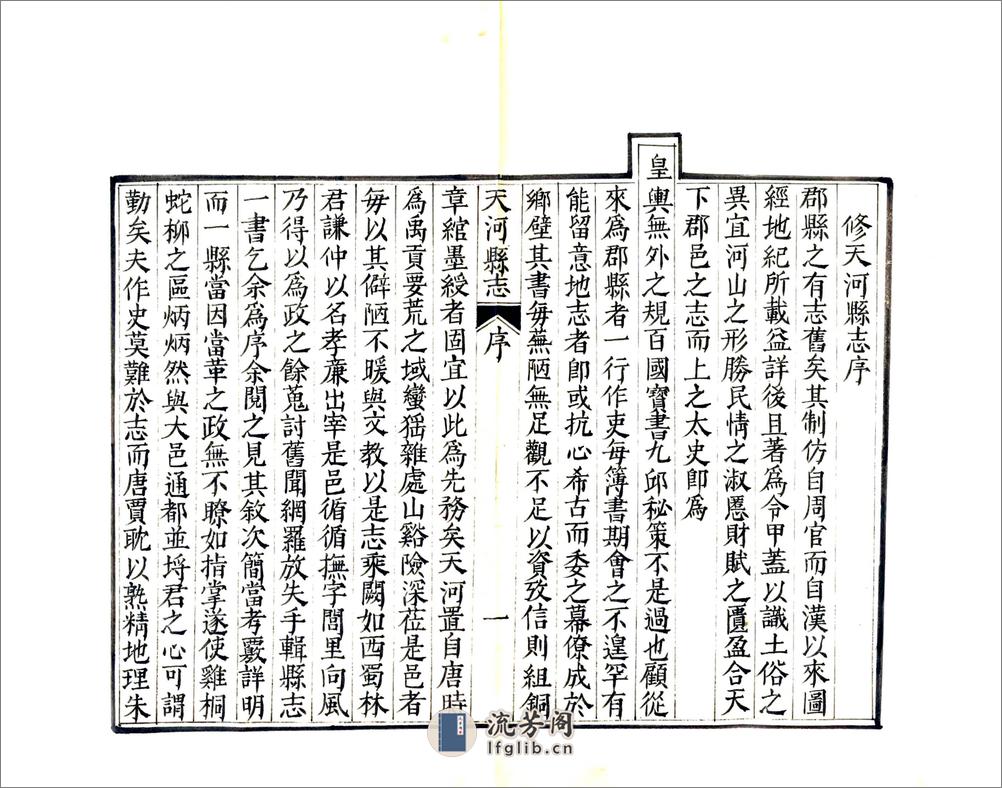 修天河縣志序
郡縣之有志舊矣其制仿自周官而自漢以來圖
經地紀所載益詳後且著爲令甲蓋以識土俗之
異宜河山之形勝民情之淑慝財賦之匱盈合天
下郡邑之志而上之太史卽爲
皇輿無外之規百國寶書九邱秘策不是過也顧從
來爲郡縣者一行作吏每簿書期會之不遑罕有
能留意地志者卽或抗心希古而委之幕僚成於
鄉壁其書毋蕪陋無足觀不足以資攷信則組銅
天河縣志 序 一
章綰墨綬者固宜以此爲先務矣天河置自唐時
爲禹貢要荒之域蠻猺雜處山谿險深莅是邑者
毎以其僻陋不暖與文教以是志乘闕如西蜀林
君謙仲以名孝廉出宰是邑循循撫字閭里向風
乃得以爲政之餘蒐討舊聞網羅放失手輯縣志
一書乞余爲序余閱之見其敘次簡當考覈詳明
而一縣當因當革之政無不瞭如指掌遂使雞桐
蛇柳之區炳炳然與大邑通都並埒君之心可謂
勤矣夫作史莫難於志而唐賈耽以熟精地理朱
流芳阁
lfglib.cn